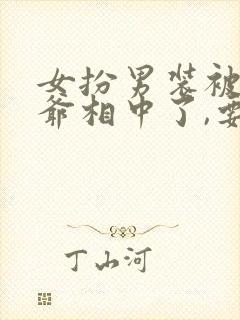 女扮男装被
爷相中了,要
丁山河